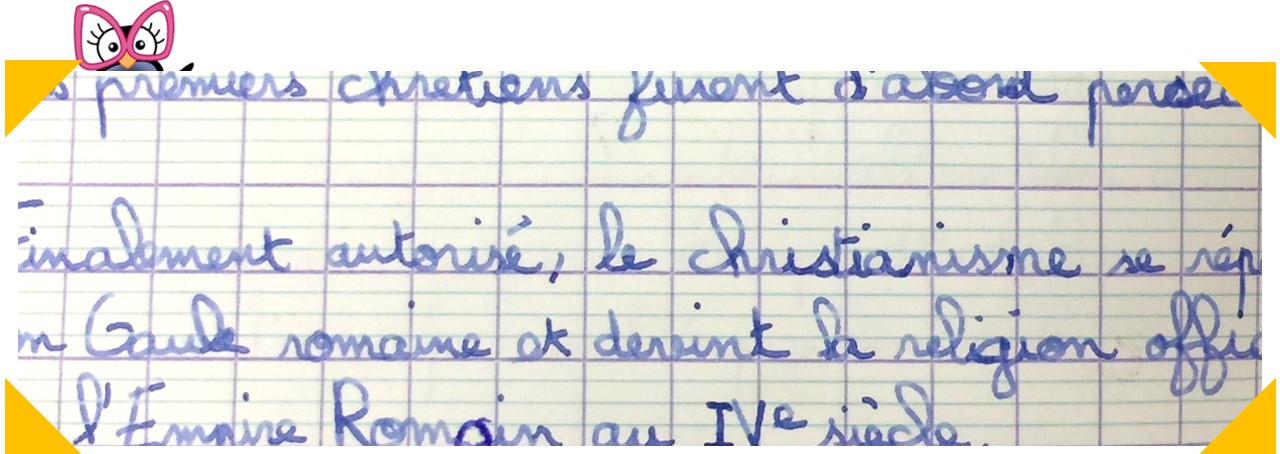 s premiers chrétiens furent d'abord persé
Finalement autorisé, le christianisme se rép
n Gaule romaine et devint la religion offic
l'Empire Romain au IVe siècle.